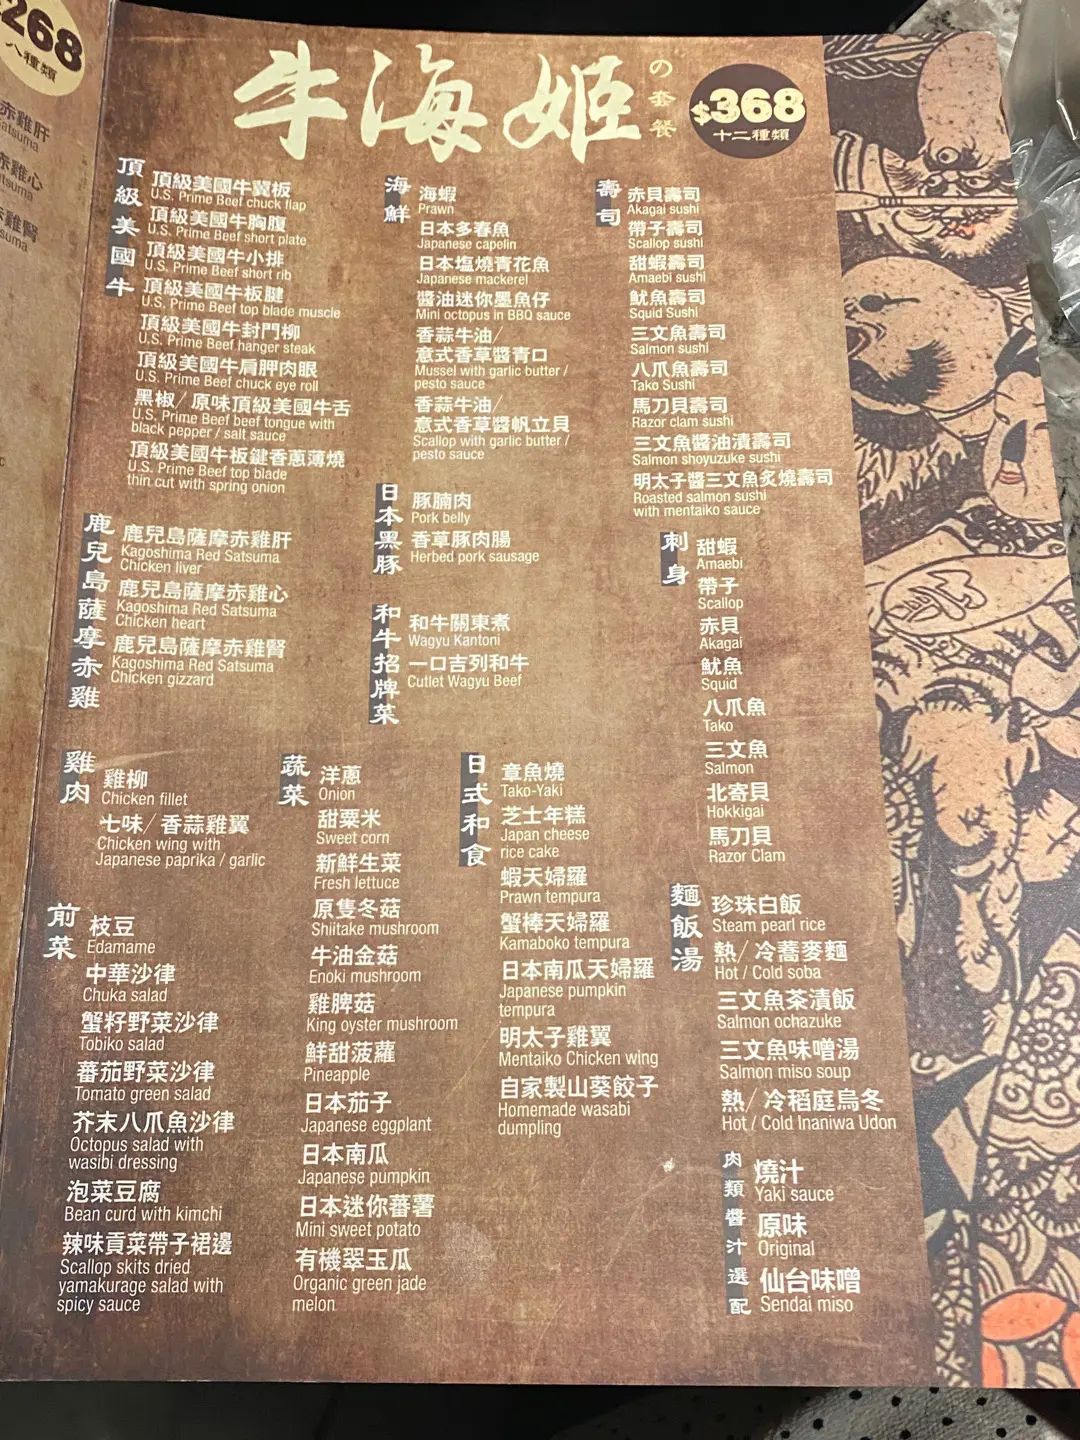 268
八種類
赤雞肝
赤雞心
赤雞腎
牛海姬
の套餐
$368
十二種類
頂級美國牛
頂級美國牛冀板
U.S. Prime Beef chuck flap
頂級美國牛胸腹
U.S. Prime Beef short plate
頂級美國牛小排
U.S. Prime Beef short rib
頂級美國牛板腱
U.S. Prime Beef top blade muscle
頂級美國牛封門柳
U.S. Prime Beef hanger steak
頂級美國牛肩胛肉眼
U.S. Prime Beef chuck eye roll
黑椒/ 原味頂級美國牛舌
U.S. Prime Beef beef tongue with
black pepper / salt sauce
頂級美國牛板鍵香蔥薄燒
U.S. Prime Beef top blade
thin cut with spring onion
鹿兒島薩摩赤雞
鹿兒島薩摩赤雞肝
Kagoshima Red Satsuma
Chicken liver
鹿兒島薩摩赤雞心
Kagoshima Red Satsuma
Chicken heart
鹿兒島薩摩赤雞腎
Kagoshima Red Satsuma
Chicken gizzard
海鮮
海蝦
Prawn
日本多春魚
Japanese capelin
日本塩燒青花魚
Japanese mackerel
醬油迷你墨魚仔
Mini octopus in BBQ sauce
香蒜牛油/
意式香草醬青口
Mussel with garlic butter /
pesto sauce
香蒜牛油/
意式香草醬帆立貝
Scallop with garlic butter /
pesto sauce
日本黑豚
豚腩肉
Pork belly
香草豚肉腸
Herbed pork sausage
和牛招牌菜
和牛關東煮
Wagyu Kantoni
一口吉列和牛
Cutlet Wagyu Beef
壽司
赤貝壽司
Akagai sushi
帶子壽司
Scallop sushi
甜蝦壽司
Amaebi sushi
魷魚壽司
Squid Sushi
三文魚壽司
Salmon sushi
八爪魚壽司
Tako Sushi
馬刀貝壽司
Razor clam sushi
三文魚醬油漬壽司
Salmon shoyuzuke sushi
明太子醬三文魚炙燒壽司
Roasted salmon sushi
with mentaiko sauce
刺身
甜蝦
Amaebi
帶子
Scallop
赤貝
Akagai
魷魚
Squid
八爪魚
Tako
三文魚
Salmon
北寄貝
Hokkigai
馬刀貝
Razor Clam
雞肉
雞柳
Chicken fillet
七味/ 香蒜雞翼
Chicken wing with
Japanese paprika / garlic
前菜
枝豆
Edamame
中華沙律
Chuka salad
蟹籽野菜沙律
Tobiko salad
蕃茄野菜沙律
Tomato green salad
芥末八爪魚沙律
Octopus salad with
wasibi dressing
泡菜豆腐
Bean curd with kimchi
辣味貢菜帶子裙邊
Scallop skits dried
yamakurage salad with
spicy sauce
蔬菜
洋蔥
Onion
甜粟米
Sweet corn
新鮮生菜
Fresh lettuce
原隻冬菇
Shiitake mushroom
牛油金菇
Enoki mushroom
雞脾菇
King oyster mushroom
鮮甜菠蘿
Pineapple
日本茄子
Japanese eggplant
日本南瓜
Japanese pumpkin
日本迷你蕃薯
Mini sweet potato
有機翠玉瓜
Organic green jade
melon
日式和食
章魚燒
Tako-Yaki
芝士年糕
Japan cheese
rice cake
蝦天婦羅
Prawn tempura
蟹棒天婦羅
Kamaboko tempura
日本南瓜天婦羅
Japanese pumpkin
tempura
明太子雞翼
Mentaiko Chicken wing
自家製山葵餃子
Homemade wasabi
dumpling
麵飯湯
珍珠白飯
Steam pearl rice
熱/ 冷蕎麥麵
Hot / Cold soba
三文魚茶漬飯
Salmon ochazuke
三文魚味噌湯
Salmon miso soup
熱/ 冷稻庭烏冬
Hot / Cold Inaniwa Udon
肉類醬汁選配
燒汁
Yaki sauce
原味
Original
仙台味噌
Sendai miso